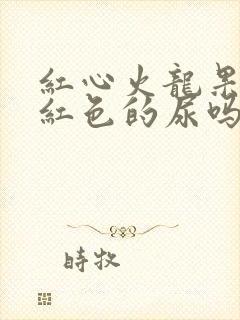 紅心火龍果
紅色的尿嗎
時牧